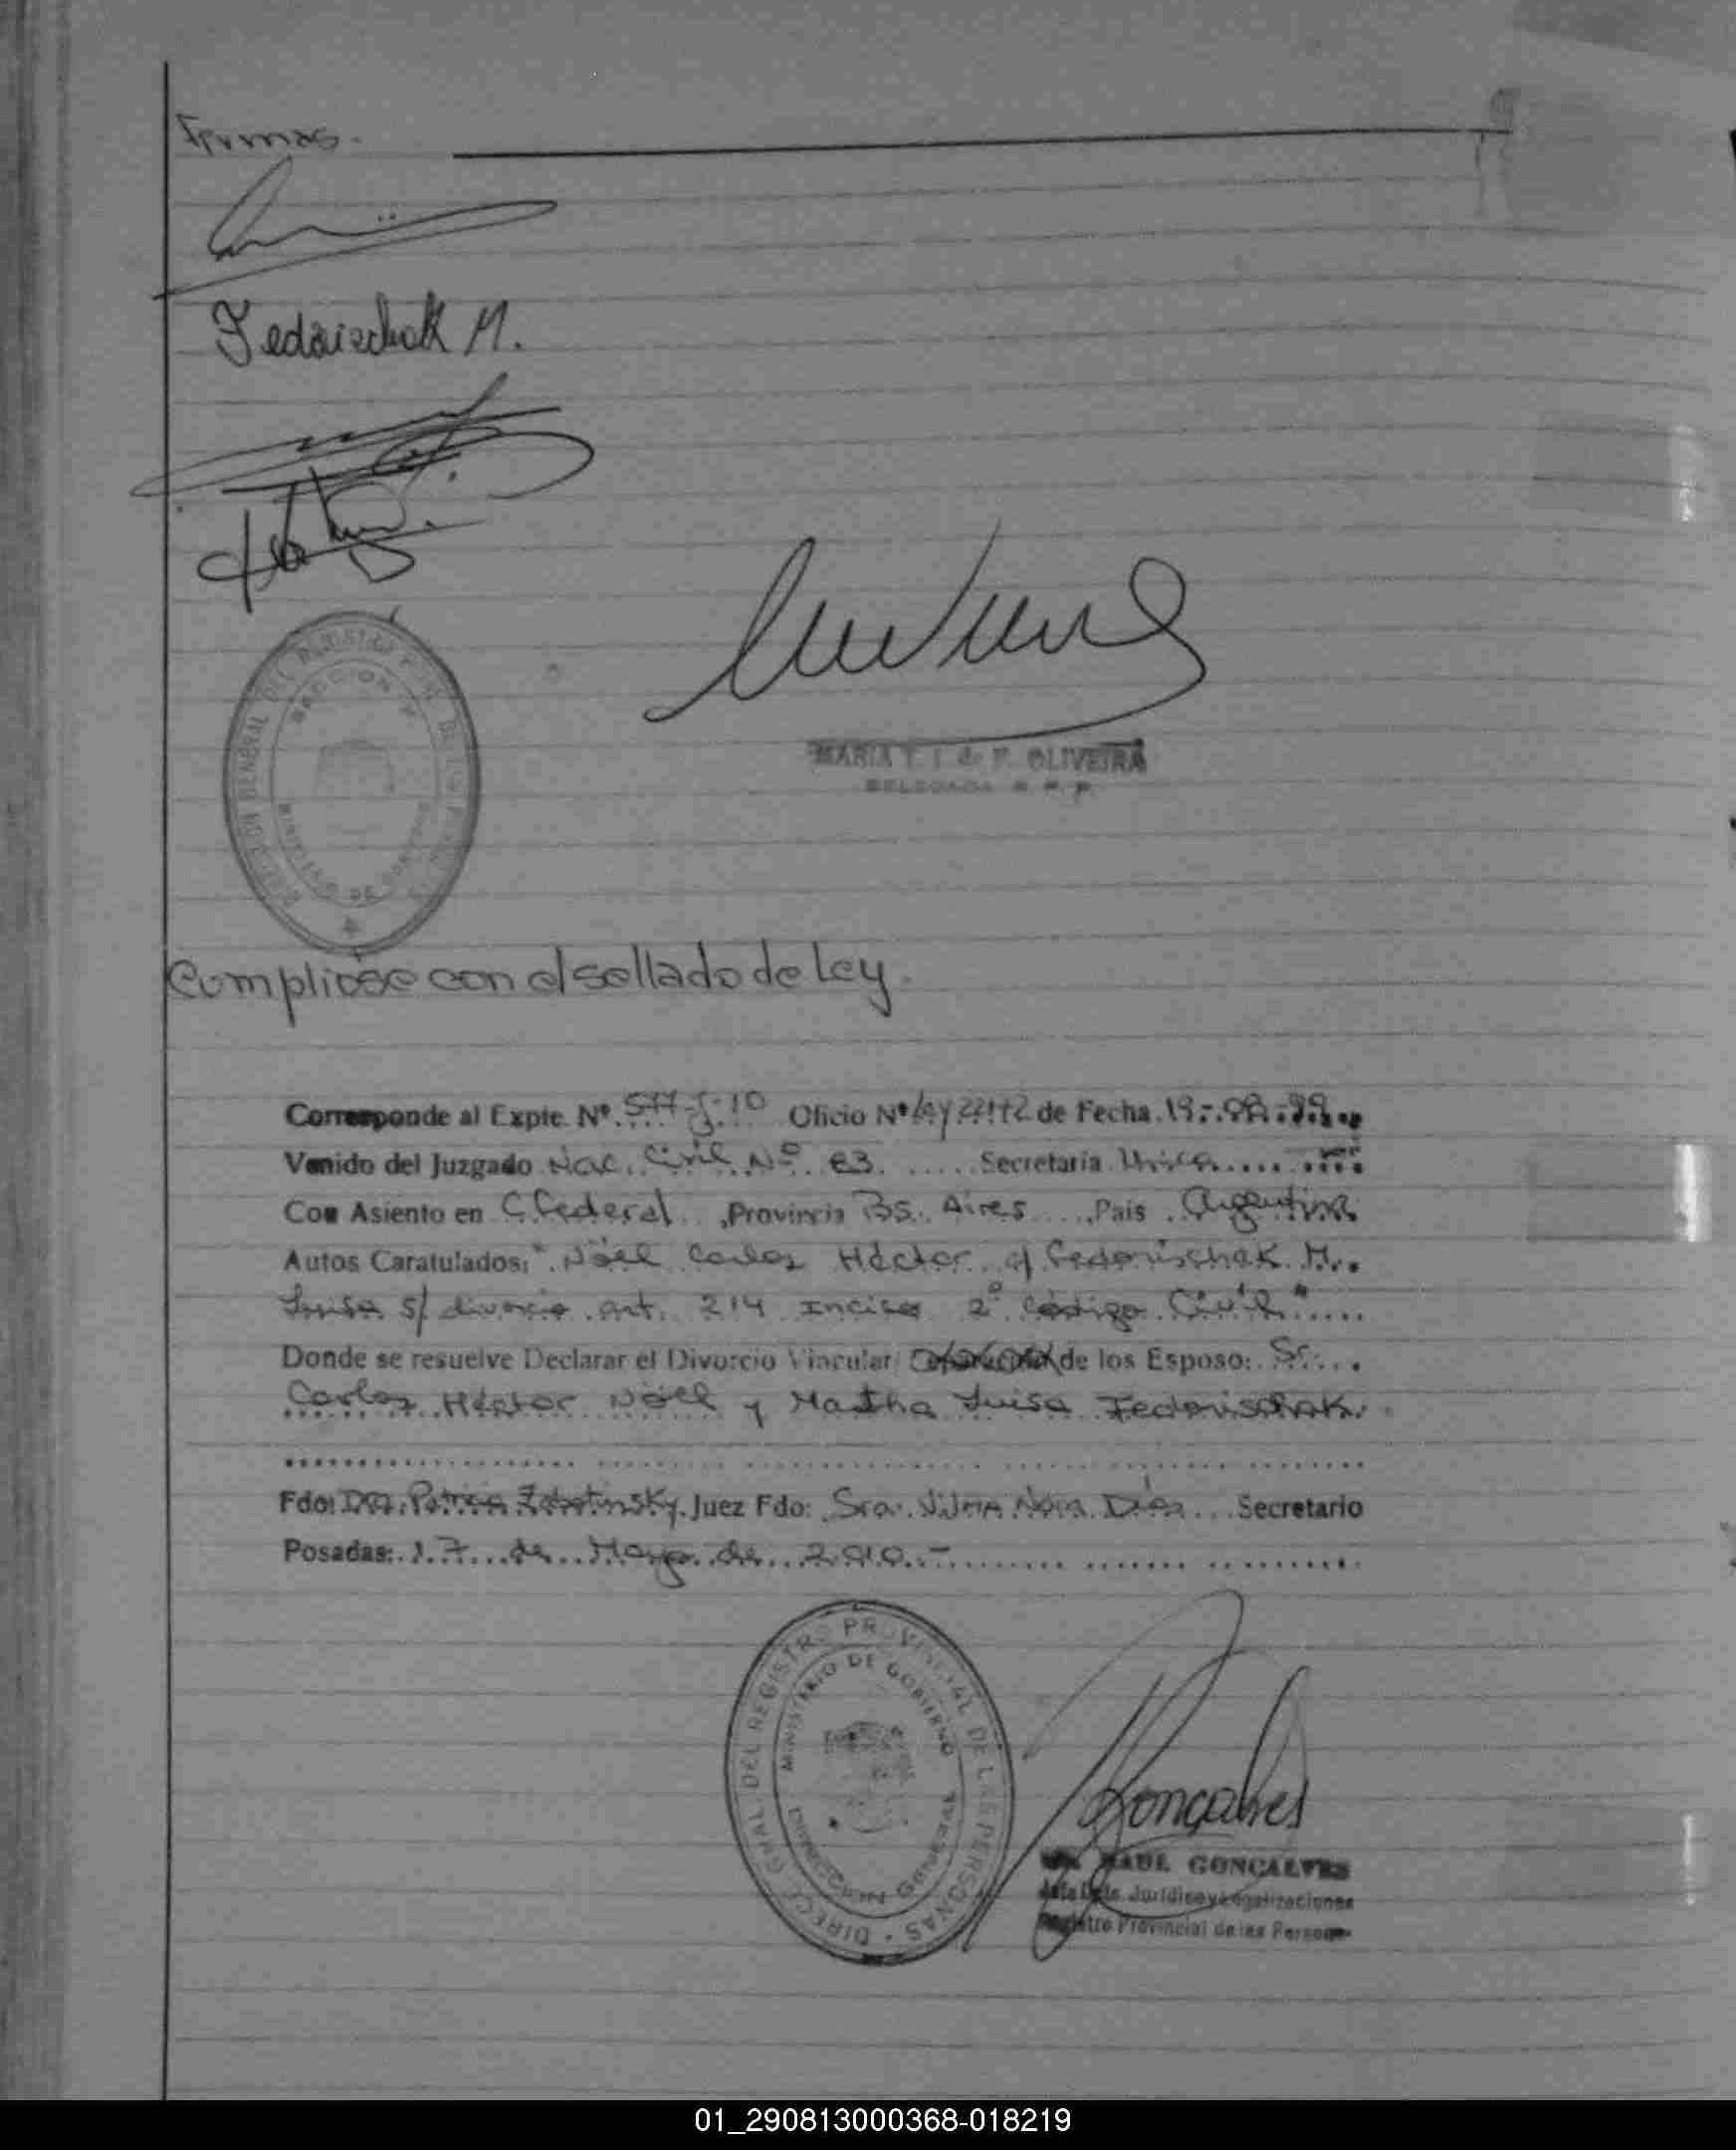 Firmas.-
Fedorischak M.
DIRECCION GENERAL DEL REGISTRO P. DE LAS PERSONAS
SECCION
MINISTERIO DE GOBIERNO
MARIA T. I. de F. OLIVEIRA
DELEGADA R. P. P.
Cumplióse con el sellado de Ley.
Corresponde al Expte. Nº 577-J-10 Oficio Nº Ley 22172 de Fecha 19-08-99
Venido del Juzgado Nac. Civil Nº 83 Secretaría Unica
Con Asiento en C. Federal, Provincia Bs. Aires, Pais Argentina
Autos Caratulados: "Nöel Carlos Héctor c/ Fedorischak M.
Luisa s/ divorcio art. 214 Inciso 2º Código Civil"
Donde se resuelve Declarar el Divorcio Vincular de los Esposo: Sr.
Carlos Héctor Nöel y Martha Luisa Fedorischak.
Fdo: Dra. Juez Fdo: Sra. Vilma Nora Díaz Secretario
Posadas: 17 de Mayo de 2010.-
DIRECC. GRAL. DEL REGISTRO PROVINCIAL DE LAS PERSONAS
MINISTERIO DE GOBIERNO
DIRECCION GENERAL
Gonçalves
RAUL GONCALVES
Jefe Dpto. Jurídico y Legalizaciones
Registro Provincial de las Personas
01_290813000368-018219